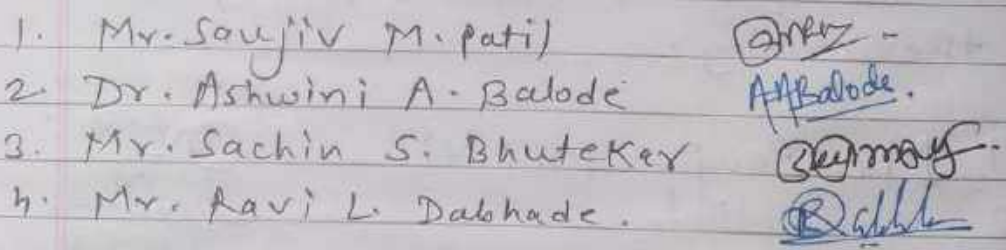 1. Mr. Saujiv M. Patil
2. Dr. Ashwini A. Balode AABalode.
3. Mr. Sachin S. Bhutekar
4. Mr. Ravi L. Dabhade.